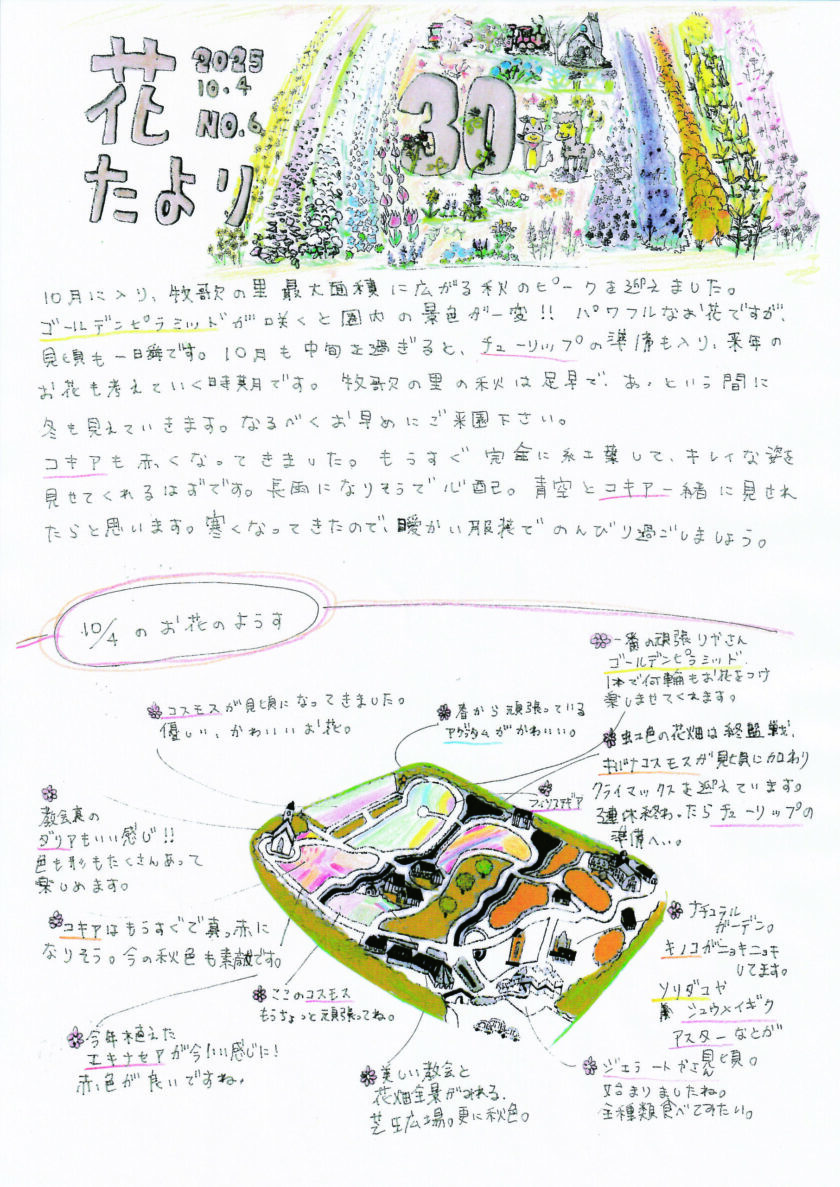 花たより
2025
10.4
NO.6
30
10月に入り、牧歌の里最大面積に広がる秋のピークを迎えました。
ゴールデンピラミッドが咲くと園内の景色が一変!! パワフルなお花ですが、
見頃も一瞬です。10月も中旬を過ぎると、チューリップの準備も入り、来年の
お花も考えていく時期です。牧歌の里の秋は足早で、あっという間に
冬も見えていきます。なるべくお早めにご来園下さい。
コキアも赤くなってきました。もうすぐ完全に紅葉して、キレイな姿を
見せてくれるはずです。長雨になりそうで心配。青空とコキア一緒に見せれ
たらと思います。寒くなってきたので、暖かい服装でのんびり過ごしましょう。
10/4のお花のようす
コスモスが見頃になってきました。
優しい、かわいいお花。
春から頑張っている
アゲラタムがかわいい。
一番の頑張りやさん
ゴールデンピラミッド。
1本で何輪もお花をつけ
楽しませてくれます。
虹色の花畑は終盤戦、
キバナコスモスが見頃に加わり
クライマックスを迎えています。
3連休終わったらチューリップの
準備へ…。
フィソステギア
教会裏の
ダリアもいい感じ!!
色も形もたくさんあって
楽しめます。
コキアはもうすぐで真っ赤に
なりそう。今の秋色も素敵です。
ここのコスモス
もうちょっと頑張ってね。
今年植えた
エキナセアが今いい感じに!
赤色が良いですね。
美しい教会と
花畑全景がみれる、
芝生広場。更に秋色。
ナチュラル
ガーデン。
キノコがニョキニョキ
してます。
ソリダコや
シュウメイギク
アスターなどが
見頃。
ジェラートやさん
始まりましたね。
全種類食べてみたい。